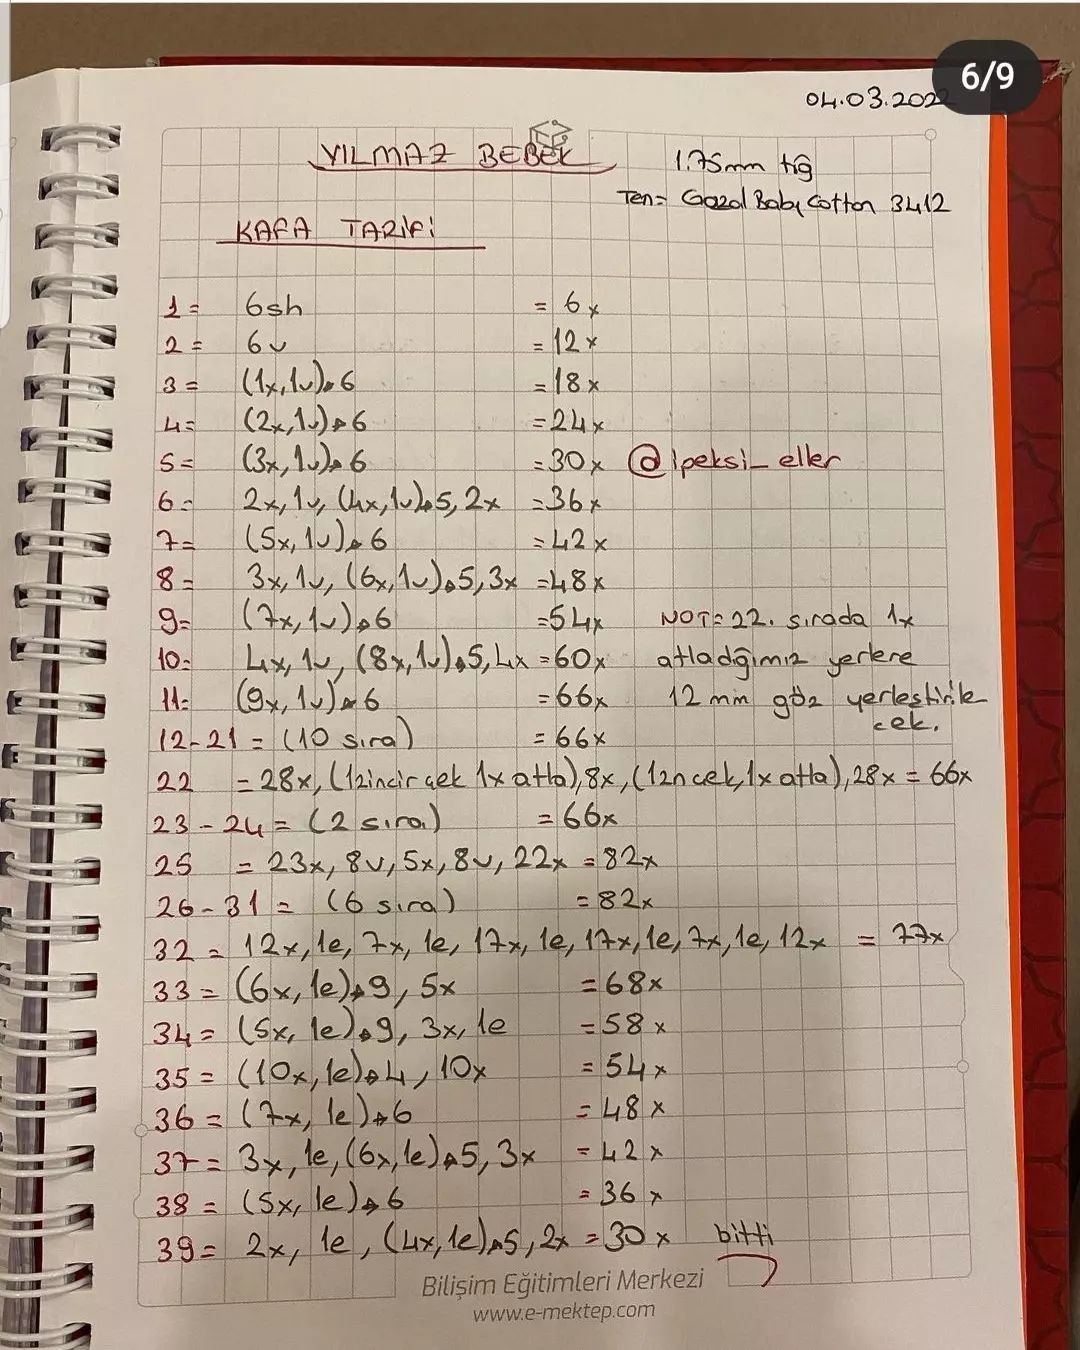 6/9
04.03.2022
YILMAZ BEBEK
1.75mm tığ
Ten= Gazal Baby Cotton 3412
KAFA TARİFİ
1= 6sh = 6x
2= 6v = 12x
3= (1x,1v)*6 = 18x
4= (2x,1v)*6 = 24x
5= (3x,1v)*6 = 30x @ipeksi_eller
6= 2x,1v,(4x,1v)*5,2x = 36x
7= (5x,1v)*6 = 42x
8= 3x,1v,(6x,1v)*5,3x = 48x
9= (7x,1v)*6 = 54x NOT= 22. sırada 1x
10= 4x,1v,(8x,1v)*5,4x = 60x atladğımız yerlere
11= (9x,1v)*6 = 66x 12 mm göz yerleştirile
cek.
12-21 = (10 sıra) = 66x
22 = 28x,(1zincir çek 1x atla),8x,(1zn çek,1x atla),28x = 66x
23-24 = (2 sıra) = 66x
25 = 23x, 8v, 5x, 8v, 22x = 82x
26-31 = (6 sıra) = 82x
32 = 12x,1e,7x,1e,17x,1e,17x,1e,7x,1e,12x = 77x
33 = (6x,1e)*9, 5x = 68x
34 = (5x,1e)*9, 3x,1e = 58x
35 = (10x,1e)*4, 10x = 54x
36 = (7x, 1e)*6 = 48x
37 = 3x,1e,(6x,1e)*5, 3x = 42x
38 = (5x,1e)*6 = 36x
39 = 2x, 1e, (4x,1e)*5, 2x = 30x bitti
Bilişim Eğitimleri Merkezi
www.e-mektep.com